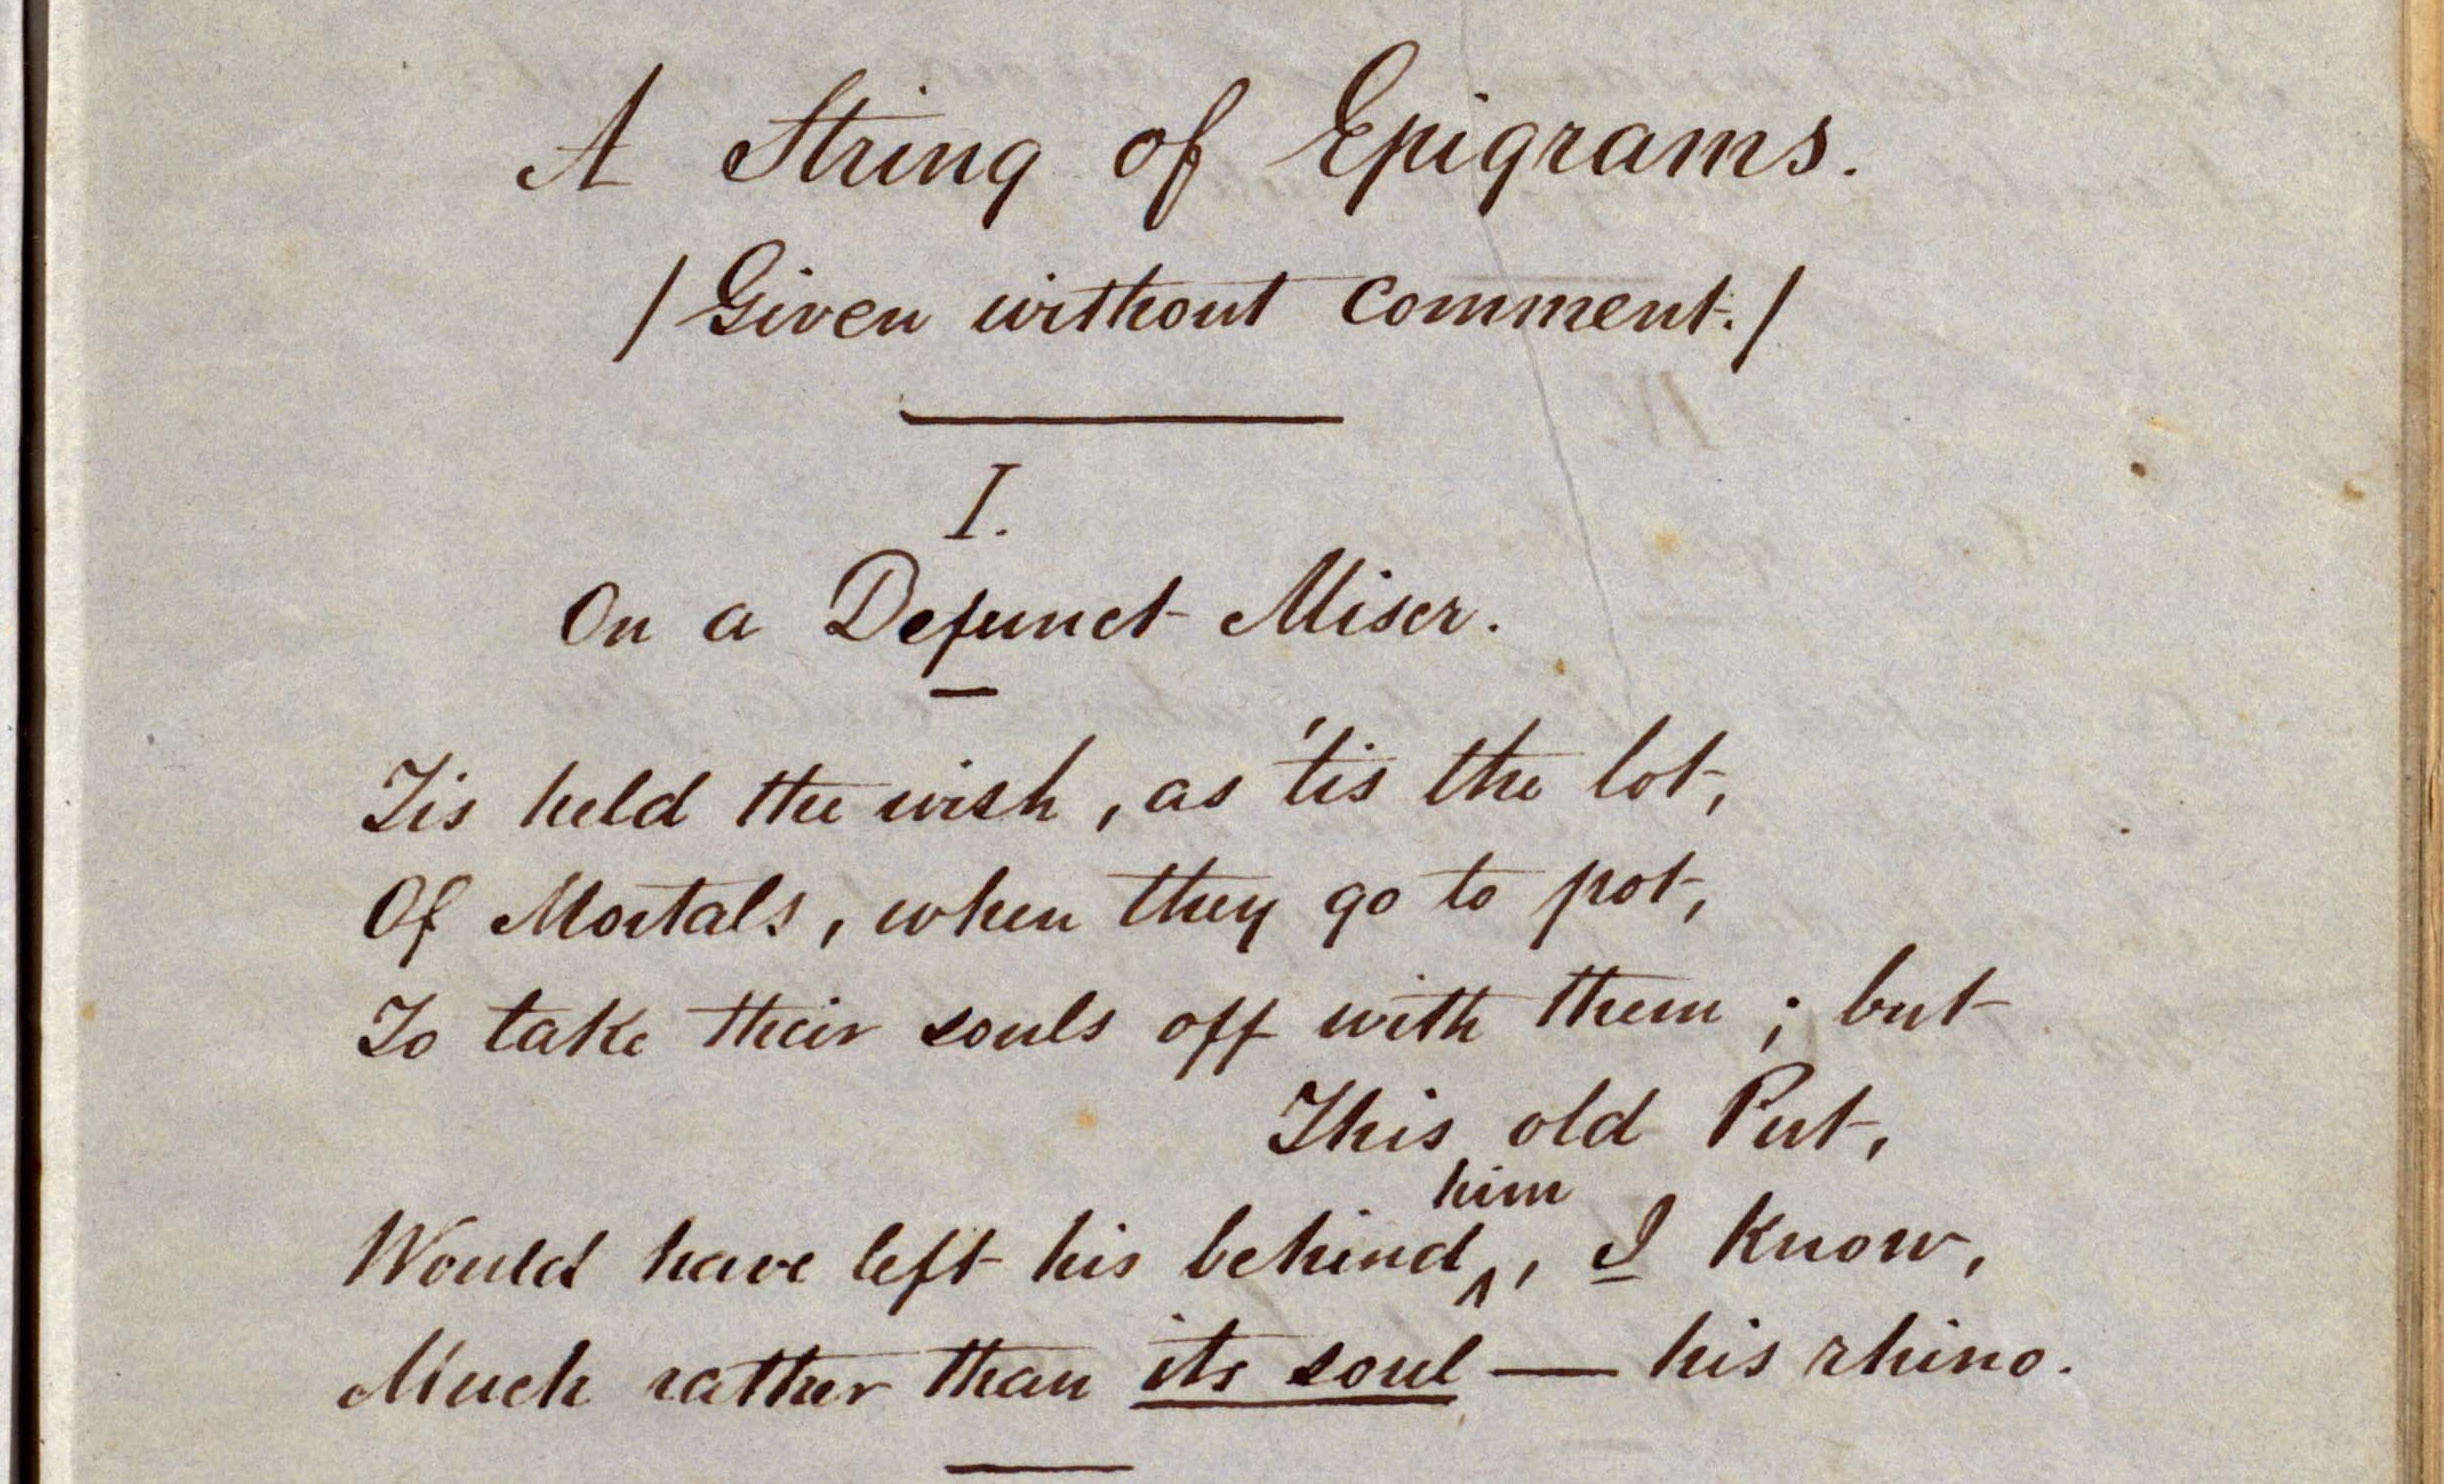 A String of Epigrams.
/Given without comment./
I.
On a Defunct Miser.
Tis held the wish, as 'tis the lot,
Of Mortals, when they go to pot,
To take their souls off with them; but
This old Put,
him
Would have left his behind ^, I know,
Much rather than its soul — his rhino.